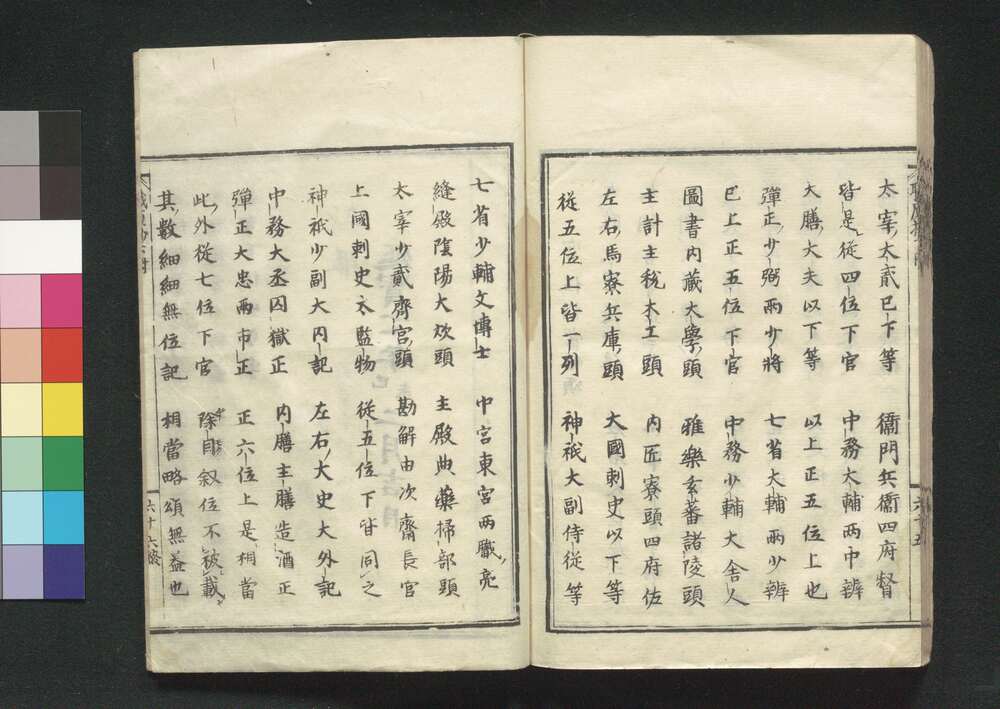 太宰大貳已下等　衞門兵衞四府督
皆是從四位下官　中務大輔兩中辨
大膳大夫以下等　以上正五位上也
彈正少弼兩少將　七省大輔兩少辨
已上正五位下官　中務少輔大舍人
圖書内藏大學頭　雅樂玄蕃諸陵頭
主計主税木工頭　内匠寮頭四府佐
左右馬寮兵庫頭　大國刺史以下等
從五位上皆一列　神祇大副侍從等
六十五
七省少輔文博士　中宮東宮兩職亮
縫殿陰陽大炊頭　主殿典藥掃部頭
太宰少貳齋宮頭　勘解由次齋長官
上國刺史大監物　從五位下皆同之
神祇少副大内記　左右大史大外記
中務大丞囚獄正　内膳主膳造酒正
彈正大忠兩市正　正六位上是相當
此外從七位下官　除目叙位不被載
其數細細無位記　相當略頌無益也
六十六終